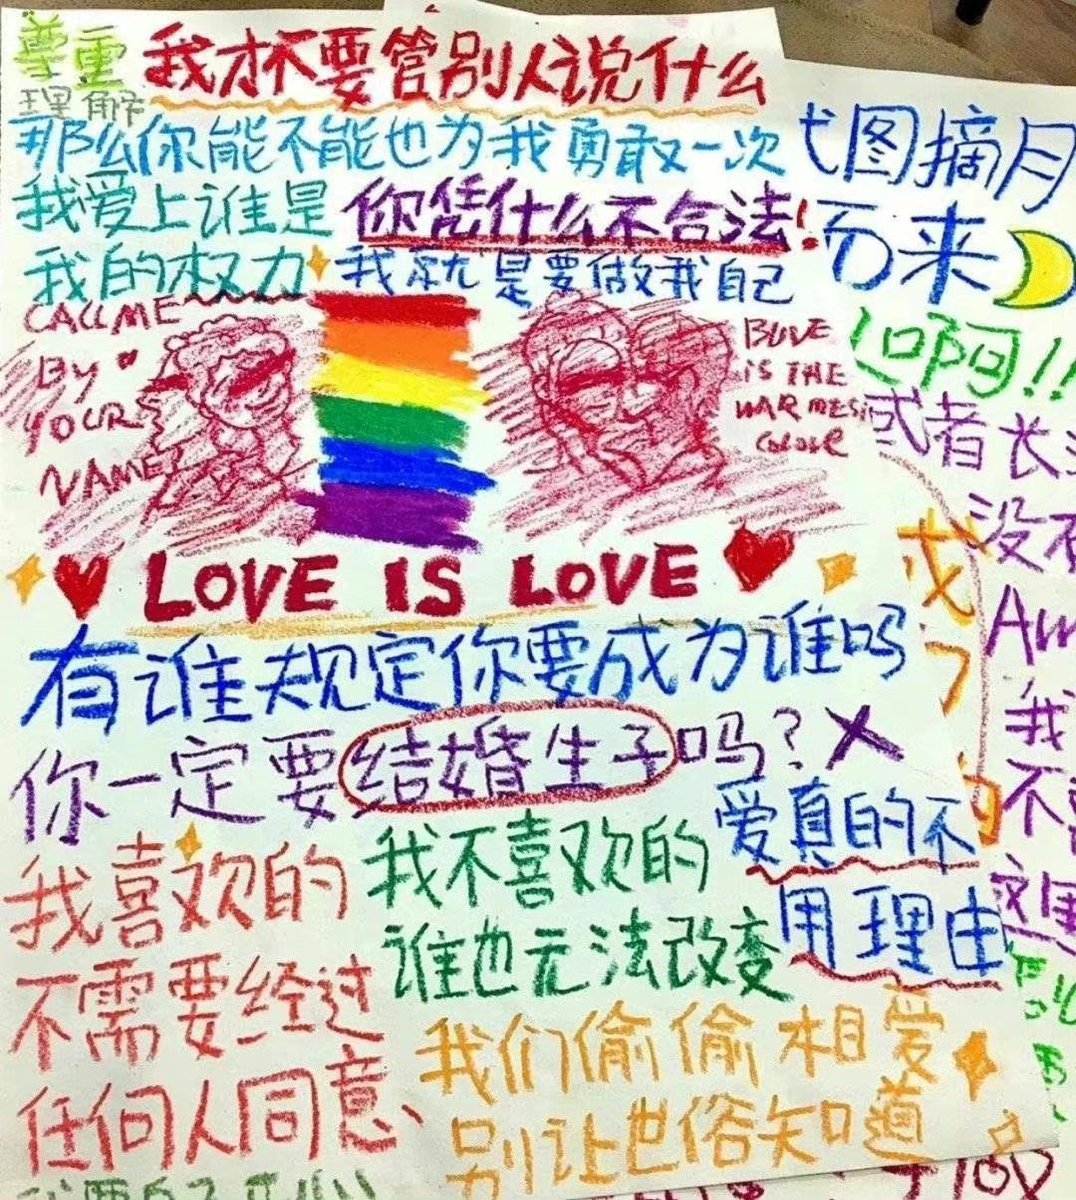 尊重
理解
我才不要管别人说什么
那么你能不能也为我勇敢一次
我爱上谁是
我的权力
你凭什么不合法!
我就是要做我自己
CALL ME
BY
YOUR
NAME
BLUE
IS THE
WARMEST
COLOUR
LOVE IS LOVE
有谁规定你要成为谁吗
你一定要结婚生子吗? X
我喜欢的
不需要经过
任何人同意
我不喜欢的
谁也无法改变
爱真的不
用理由
我们偷偷相爱
别让世俗知道
图摘月
而来
啊!!
或者长
没
我
不
这里